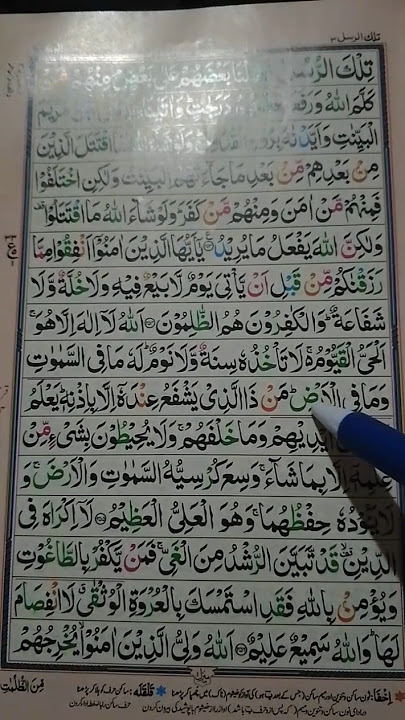 تلك الرسل ٣
تِلْكَ الرُّسُلُ فَضَّلْنَا بَعْضَهُمْ عَلٰى بَعْضٍ مِنْهُمْ مَّنْ
كَلَّمَ اللّٰهُ وَرَفَعَ دَرَجٰتٍ وَاٰتَيْنَا مَرْيَمَ
الْبَيِّنٰتِ وَاَيَّدْنٰهُ بِرُوْحِ الْقُدُسِ وَلَوْ شَآءَ اللّٰهُ مَا اقْتَتَلَ الَّذِيْنَ
مِنْۢ بَعْدِهِمْ مِّنْۢ بَعْدِ مَا جَآءَتْهُمُ الْبَيِّنٰتُ وَلٰكِنِ اخْتَلَفُوْا
فَمِنْهُمْ مَّنْ اٰمَنَ وَمِنْهُمْ مَّنْ كَفَرَ ؕ وَلَوْ شَآءَ اللّٰهُ مَا اقْتَتَلُوْا
وَلٰكِنَّ اللّٰهَ يَفْعَلُ مَا يُرِيْدُ يٰۤاَيُّهَا الَّذِيْنَ اٰمَنُوْۤا اَنْفِقُوْا مِمَّا
رَزَقْنٰكُمْ مِّنْ قَبْلِ اَنْ يَّاْتِيَ يَوْمٌ لَّا بَيْعٌ فِيْهِ وَلَا خُلَّةٌ وَّلَا
شَفَاعَةٌ ؕ وَالْكٰفِرُوْنَ هُمُ الظّٰلِمُوْنَ اَللّٰهُ لَاۤ اِلٰهَ اِلَّا هُوَ ۚ
اَلْحَيُّ الْقَيُّوْمُ ۚ لَا تَاْخُذُهٗ سِنَةٌ وَّلَا نَوْمٌ ؕ لَهٗ مَا فِي السَّمٰوٰتِ
وَمَا فِي الْاَرْضِ ؕ مَنْ ذَا الَّذِيْ يَشْفَعُ عِنْدَهٗۤ اِلَّا بِاِذْنِهٖ ؕ يَعْلَمُ
اَيْدِيْهِمْ وَمَا خَلْفَهُمْ ۚ وَلَا يُحِيْطُوْنَ بِشَيْءٍ مِّنْ
عِلْمِهٖۤ اِلَّا بِمَا شَآءَ ۚ وَسِعَ كُرْسِيُّهُ السَّمٰوٰتِ وَالْاَرْضَ ۚ وَ
لَا يَـُٔوْدُهٗ حِفْظُهُمَا ۚ وَهُوَ الْعَلِيُّ الْعَظِيْمُ لَاۤ اِكْرَاهَ فِي
الدِّيْنِ قَدْ تَّبَيَّنَ الرُّشْدُ مِنَ الْغَيِّ ۚ فَمَنْ يَّكْفُرْ بِالطَّاغُوْتِ
وَيُؤْمِنْۢ بِاللّٰهِ فَقَدِ اسْتَمْسَكَ بِالْعُرْوَةِ الْوُثْقٰى لَا انْفِصَامَ
لَهَا ؕ وَاللّٰهُ سَمِيْعٌ عَلِيْمٌ اَللّٰهُ وَلِيُّ الَّذِيْنَ اٰمَنُوْا يُخْرِجُهُمْ
مِّنَ الظُّلُمٰتِ